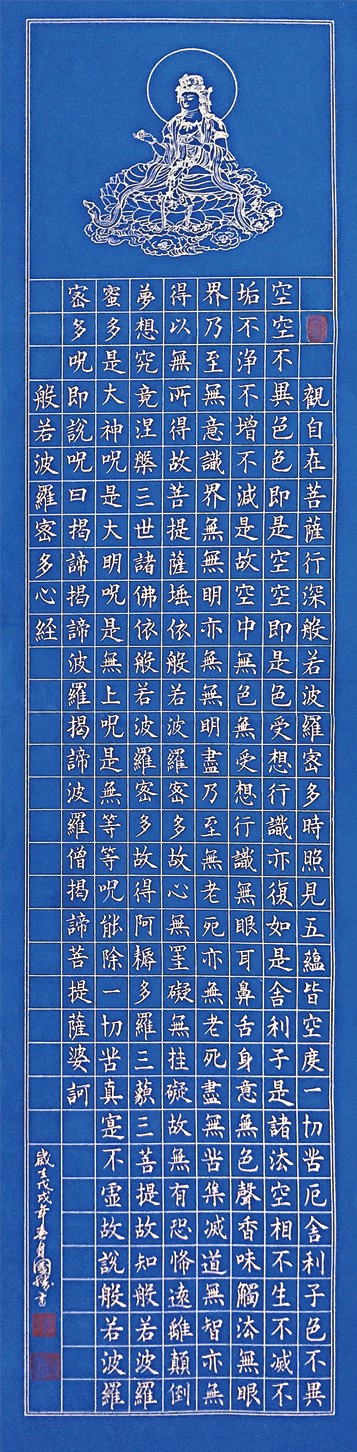 觀自在菩薩行深般若波羅密多時照見五蘊皆空度一切苦厄舍利子色不異
空空不異色色即是空空即是色受想行識亦復如是舍利子是諸法空相不生不滅不
垢不淨不增不減是故空中無色無受想行識無眼耳鼻舌身意無色聲香味觸法無眼
界乃至無意識界無無明亦無無明盡乃至無老死亦無老死盡無苦集滅道無智亦無
得以無所得故菩提薩埵依般若波羅密多故心無罣礙無挂礙故無有恐怖遠離顛倒
夢想究竟涅槃三世諸佛依般若波羅密多故得阿耨多羅三藐三菩提故知般若波羅
蜜多是大神呪是大明呪是無上呪是無等等呪能除一切苦真寔不虛故說般若波羅
密多呪即說呪曰揭諦揭諦波羅揭諦波羅僧揭諦菩提薩婆訶
般若波羅密多心経
歲在戊戌年